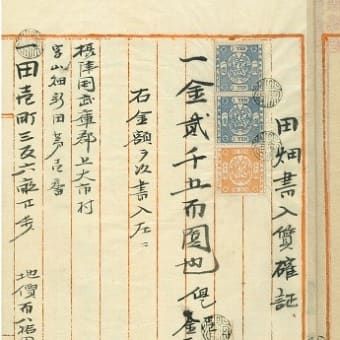 田畑書入質確証
一金貳千五百圓也 但
右金額ヲ以書入左ニ
摂津国武庫郡上大市村
字山畑新田第壱番
一田壱町三反六畝 歩 地價百八拾